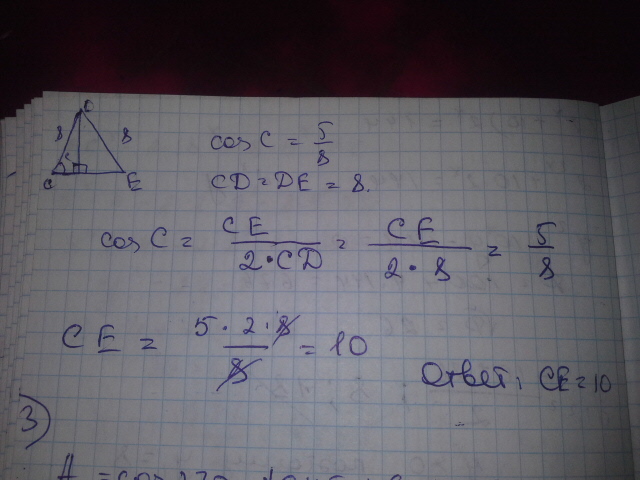 D
8 8
C E
cos C = 5/8
CD = DE = 8.
cos C = CE/(2·CD) = CE/(2·8) = 5/8
CE = 5·2·8/8 = 10
Ответ: CE = 10
3)